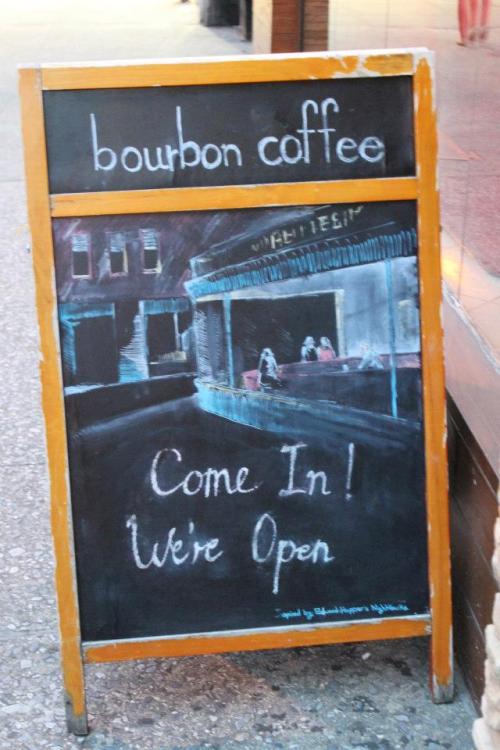 bourbon coffee
Come In!
We're Open
Inspired by Edward Hopper's Nighthawks